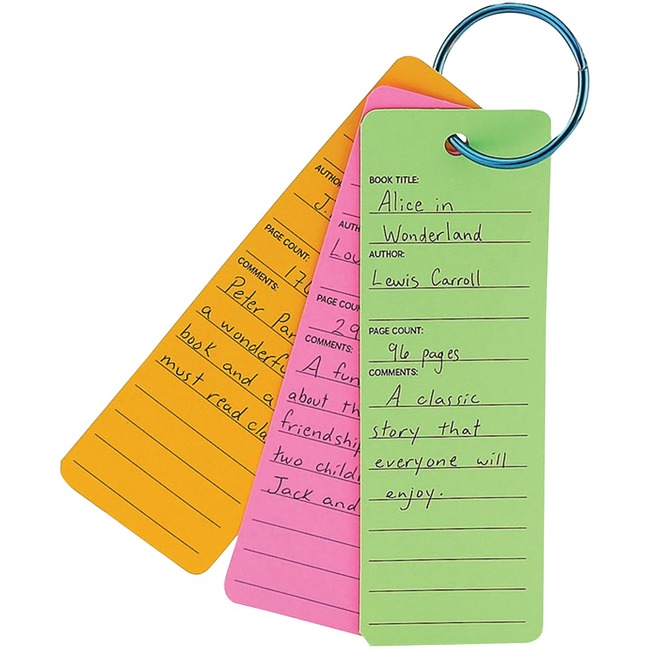 BOOK TITLE:
Alice in
Wonderland
AUTHOR:
Lewis Carroll
PAGE COUNT:
96 pages
COMMENTS:
A classic
story that
everyone will
enjoy.
PAGE COUN
29
COMMENTS:
A fun
about th
friendship
two child
Jack and
J.
PAGE COUNT:
COMMENTS:
Peter Pan
a wonderf
book and a
must read cla